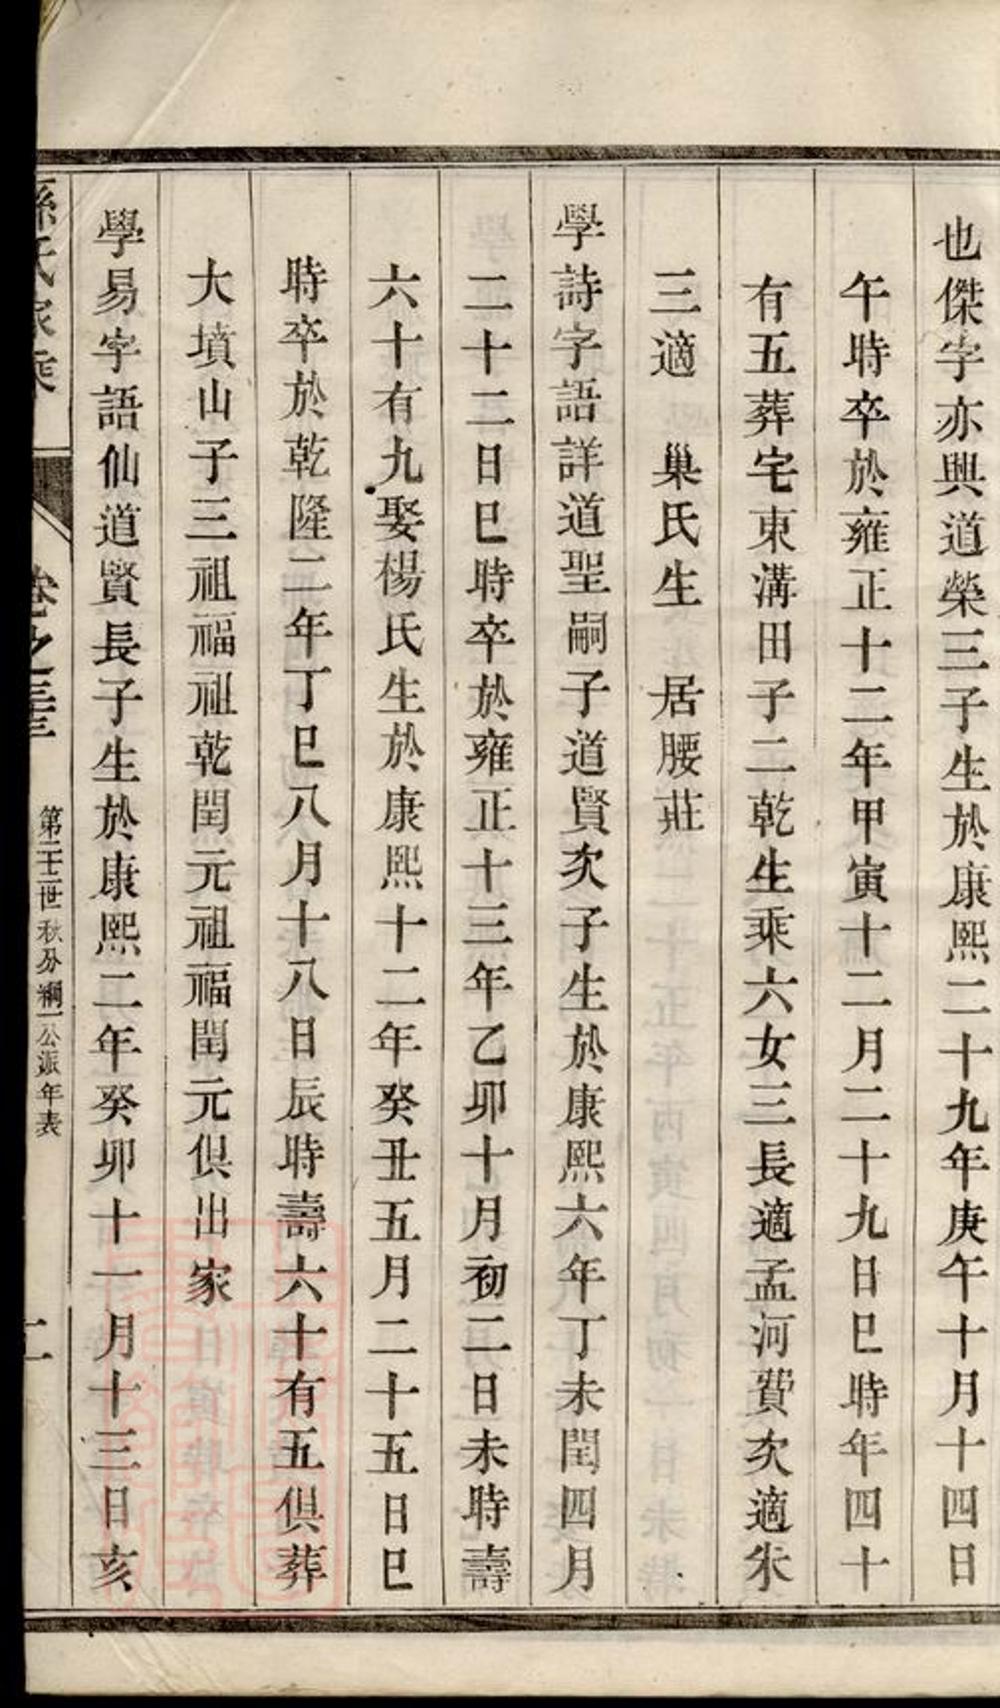 也傑字亦興道榮三子生於康熙二十九年庚午十月十四日
午時卒於雍正十二年甲寅十二月二十九日巳時年四十
有五葬宅東溝田子二乾生乘六女三長適孟河費次適朱
三適　巢氏生　居腰莊
學詩字語詳道聖嗣子道賢次子生於康熙六年丁未閏四月
二十二日巳時卒於雍正十三年乙卯十月初二日未時壽
六十有九娶楊氏生於康熙十二年癸丑五月二十五日巳
時卒於乾隆二年丁巳八月十八日辰時壽六十有五俱葬
大墳山子三祖福祖乾閏元祖福閏元俱出家
學易字語仙道賢長子生於康熙二年癸卯十一月十三日亥
孫氏家乘
卷之三
世秋分
公派年表
二